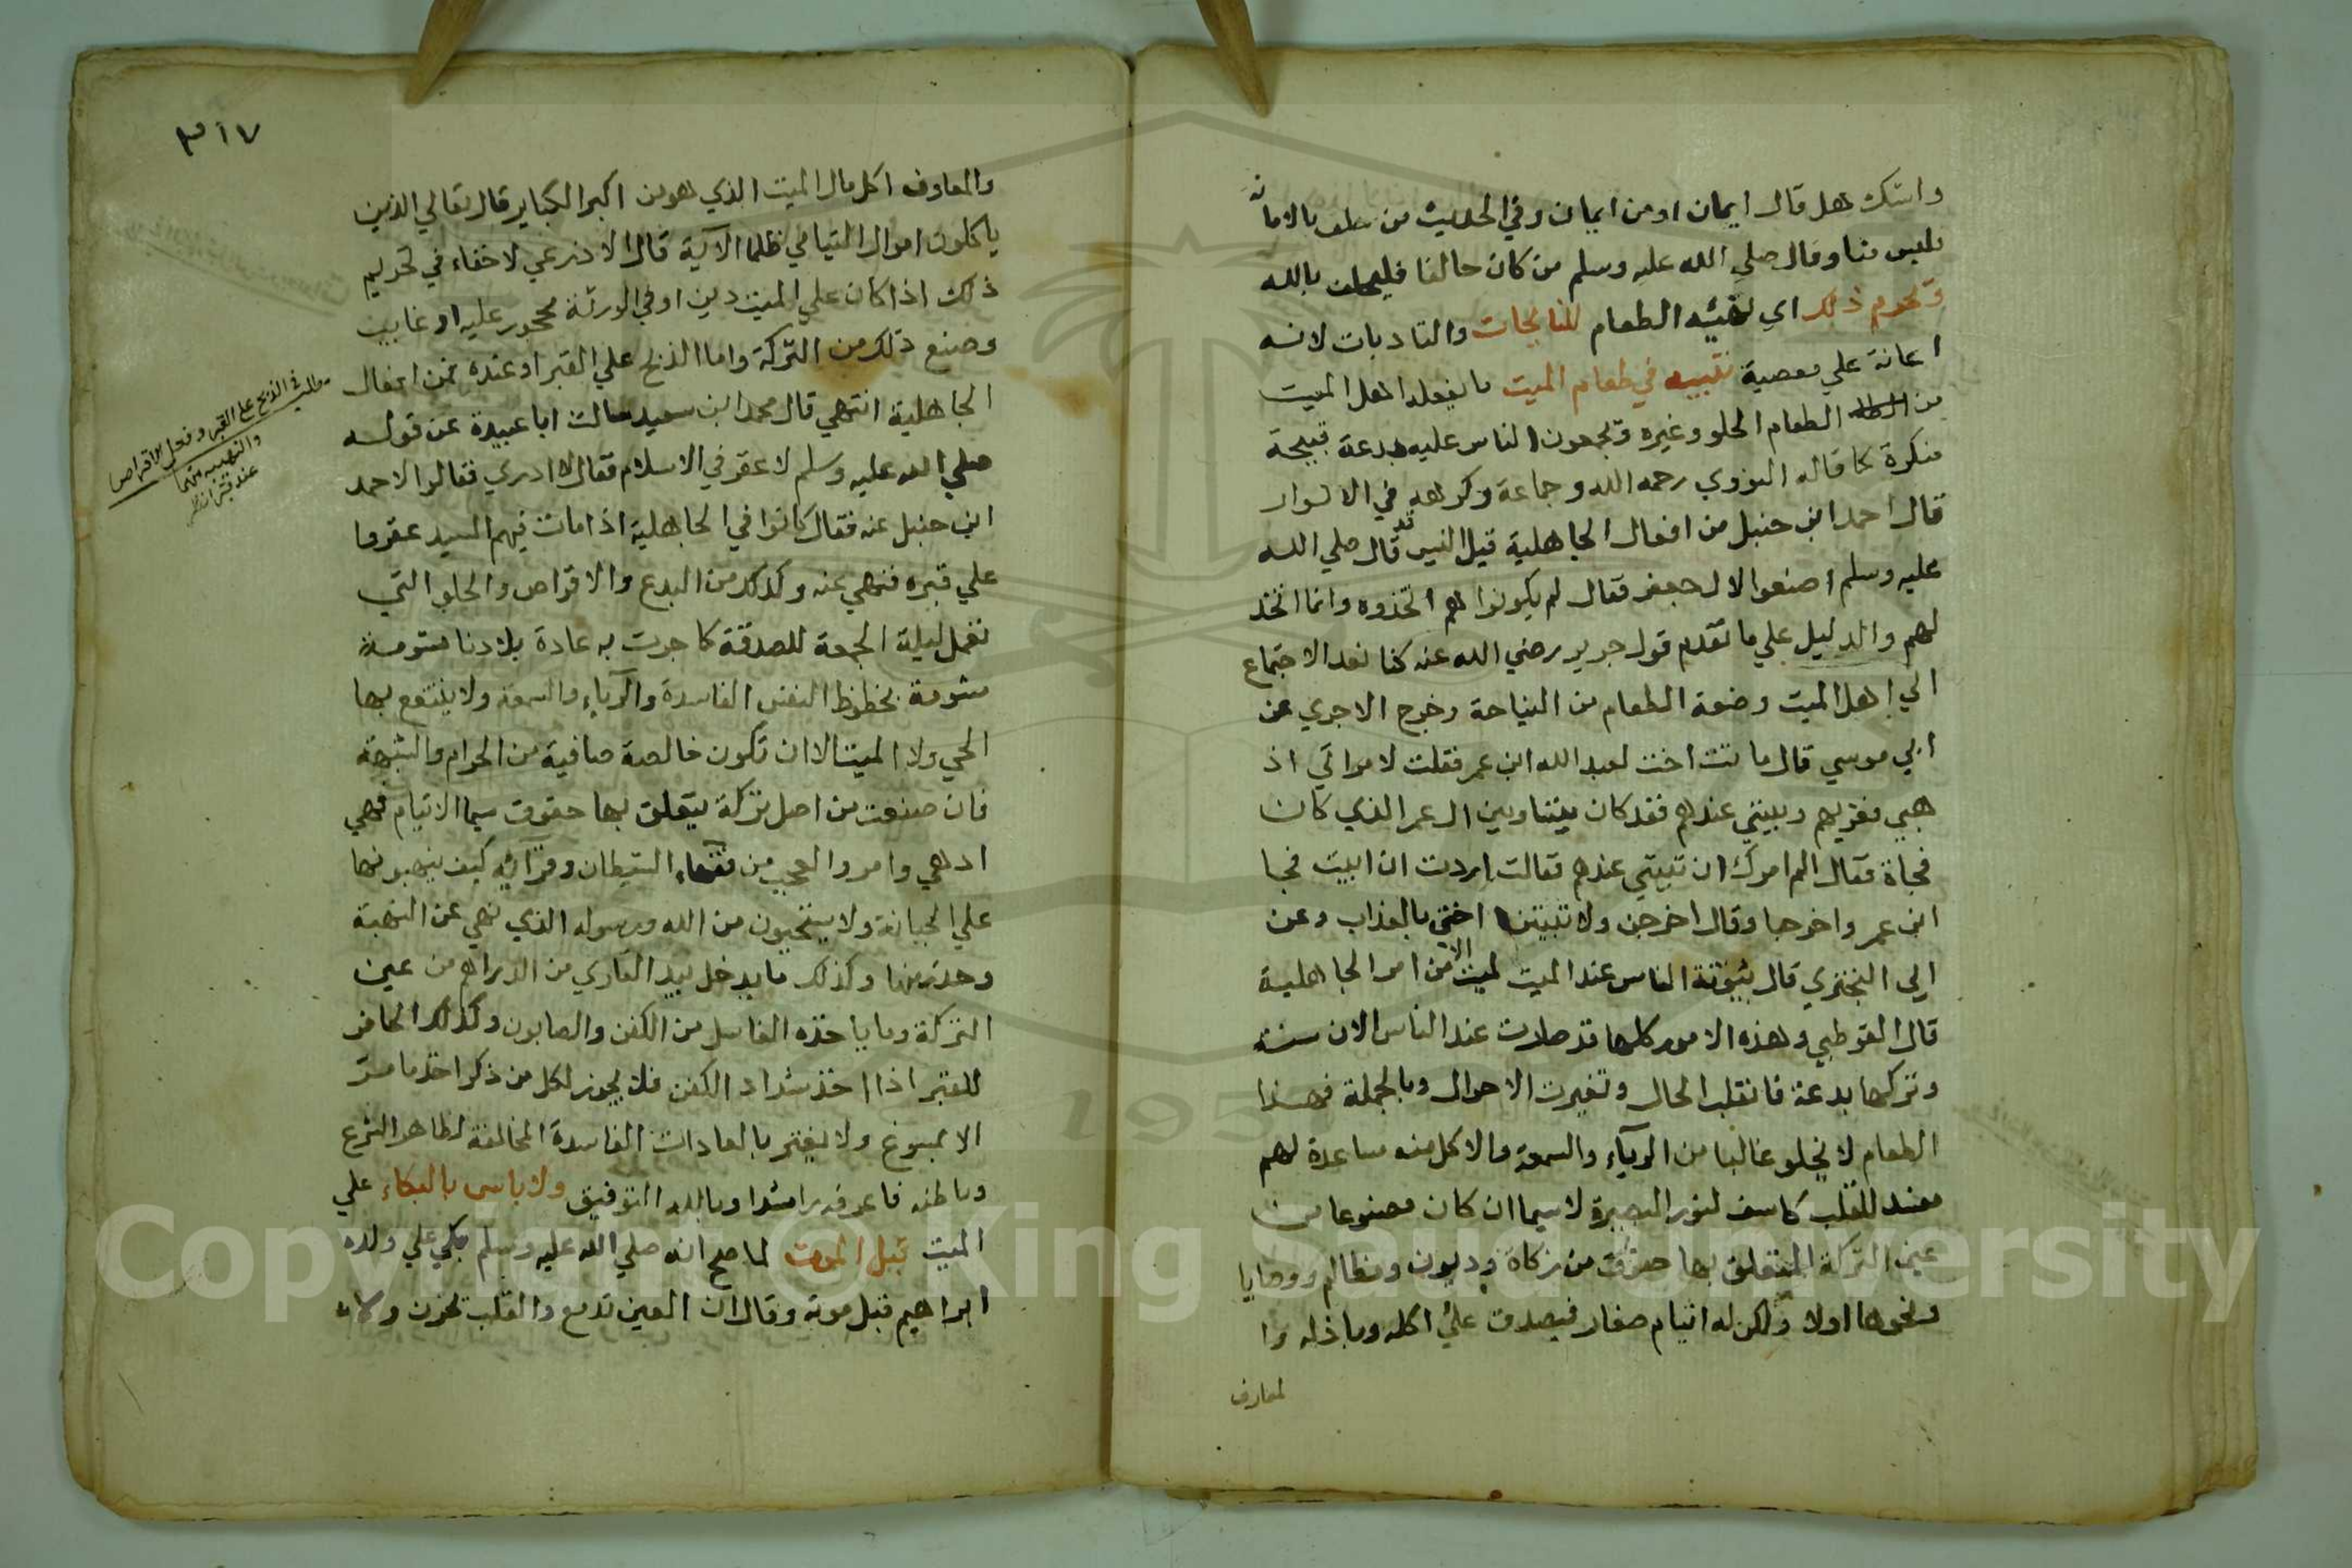 واشك هل قال ايمان او من ايمان وفي الحديث من حلف بالامانة
فليس منا وقال صلي الله عليه وسلم من كان حالفا فليحلف بالله
وتحرم ذلك اي تهيئه الطعام للنائحات والنادبات لانه
اعانة علي معصية تنبيه في طعام الميت ما يفعله اهل الميت
من الطعام الحلو وغيره وتجمعون الناس عليه بدعة قبيحة
منكرة كما قاله النووي رحمه الله وجماعة وكرهه في الانوار
قال احمد ابن حنبل من افعال الجاهلية قيل اليس قد قال صلي الله
عليه وسلم اصنعوا لال جعفر فقال لم يكونوا هم اتخذوه وانما اتخذ
لهم والدليل علي ما تقدم قول جرير رضي الله عنه كنا نعد الاجتماع
الي اهل الميت وضعة الطعام من النياحة وخرج الاجري عن
ابي موسي قال ماتت اخت لعبد الله ابن عمر فقلت لامراتي اذ
هبي فعزيهم وبيتي عندهم فقد كان بيننا وبين ال عمر الذي كان
فجاة فقال الم امرك ان تبيتي عندهم فقالت اردت ان ابيت فجا
ابن عمر واخرجا وقال اخرجن ولا تبيتن اختي بالعذاب وعن
ابي البختري قال بيتوتة الناس عند الميت ليست الا من امر الجاهلية
قال القرطبي وهذه الامور كلها قد صارت عند الناس الان سنة
وتركها بدعة فانقلب الحال وتغيرت الاحوال وبالجملة فهذا
الطعام لا يخلو غالبا من الرياء والسمعة والاكل منه مساعدة لهم
مفسد للقلب كاسف لنور البصيرة لا سيما ان كان مصنوعا من
عين التركة المتعلق بها حقوق من زكاة وديون ومظالم ووصايا
ونحوها اولا ولكن له ايتام صغار فيصدق علي اكله وباذله وا
لمعارف
٣١٧
والمعاوف اكل مال الميت الذي هو من اكبر الكباير قال تعالي الذين
ياكلون اموال اليتامي ظلما الاية قال الاذرعي لا خفاء في تحريم
ذلك اذا كان علي الميت دين او في الورثة محجور عليه او غايب
وصنع ذلك من التركة واما الذبح علي القبر او عنده فمن افعال
الجاهلية انتهي قال محمد ابن سعيد سالت ابا عبيدة عن قوله
صلي الله عليه وسلم لا عقر في الاسلام فقال لا ادري فقالوا لاحمد
ابن حنبل عنه فقال كانوا في الجاهلية اذا مات فيهم السيد عقروا
علي قبره فنهي عنه وكذلك من البدع والاقراص والحلو التي
تعمل ليلة الجمعة للصدقة كما جرت به عادة بلادنا
مشومة بحظوظ النفس الفاسدة والرياء والسمعة ولا ينتفع بها
الحي ولا الميت الا ان تكون خالصة صافية من الحرام والشبهة
فان صنعت من اصل تركة يتعلق بها حقوق سيما الايتام فهي
ادهي وامر والعجب من فقهاء الشيطان وقرائه كيف ينهبونها
علي الجبانة ولا يستحيون من الله ورسوله الذي نهي عن النهبة
وحذر منها وكذلك ما يدخل بيد القاري من الدراهم من عين
التركة وما ياخذه الغاسل من الكفن والصابون وكذلك الحافر
للقبر اذا اخذ شداد الكفن فلا يجوز لكل من ذكر اخذ ما مر
الا بمسوغ ولا يغتر بالعادات الفاسدة المخالفة لظاهر الشرع
وباطنه فاعرفه راشدا وبالله التوفيق ولا باس بالبكاء علي
الميت قبل الموت لما صح انه صلي الله عليه وسلم بكي علي ولده
ابراهيم قبل موته وقال ان العين تدمع والقلب تحزن ولا
مطلب في الذبح علي القبر وفعل الاقراص
والنهيبة
عند
Copyright © King Saud University
1957